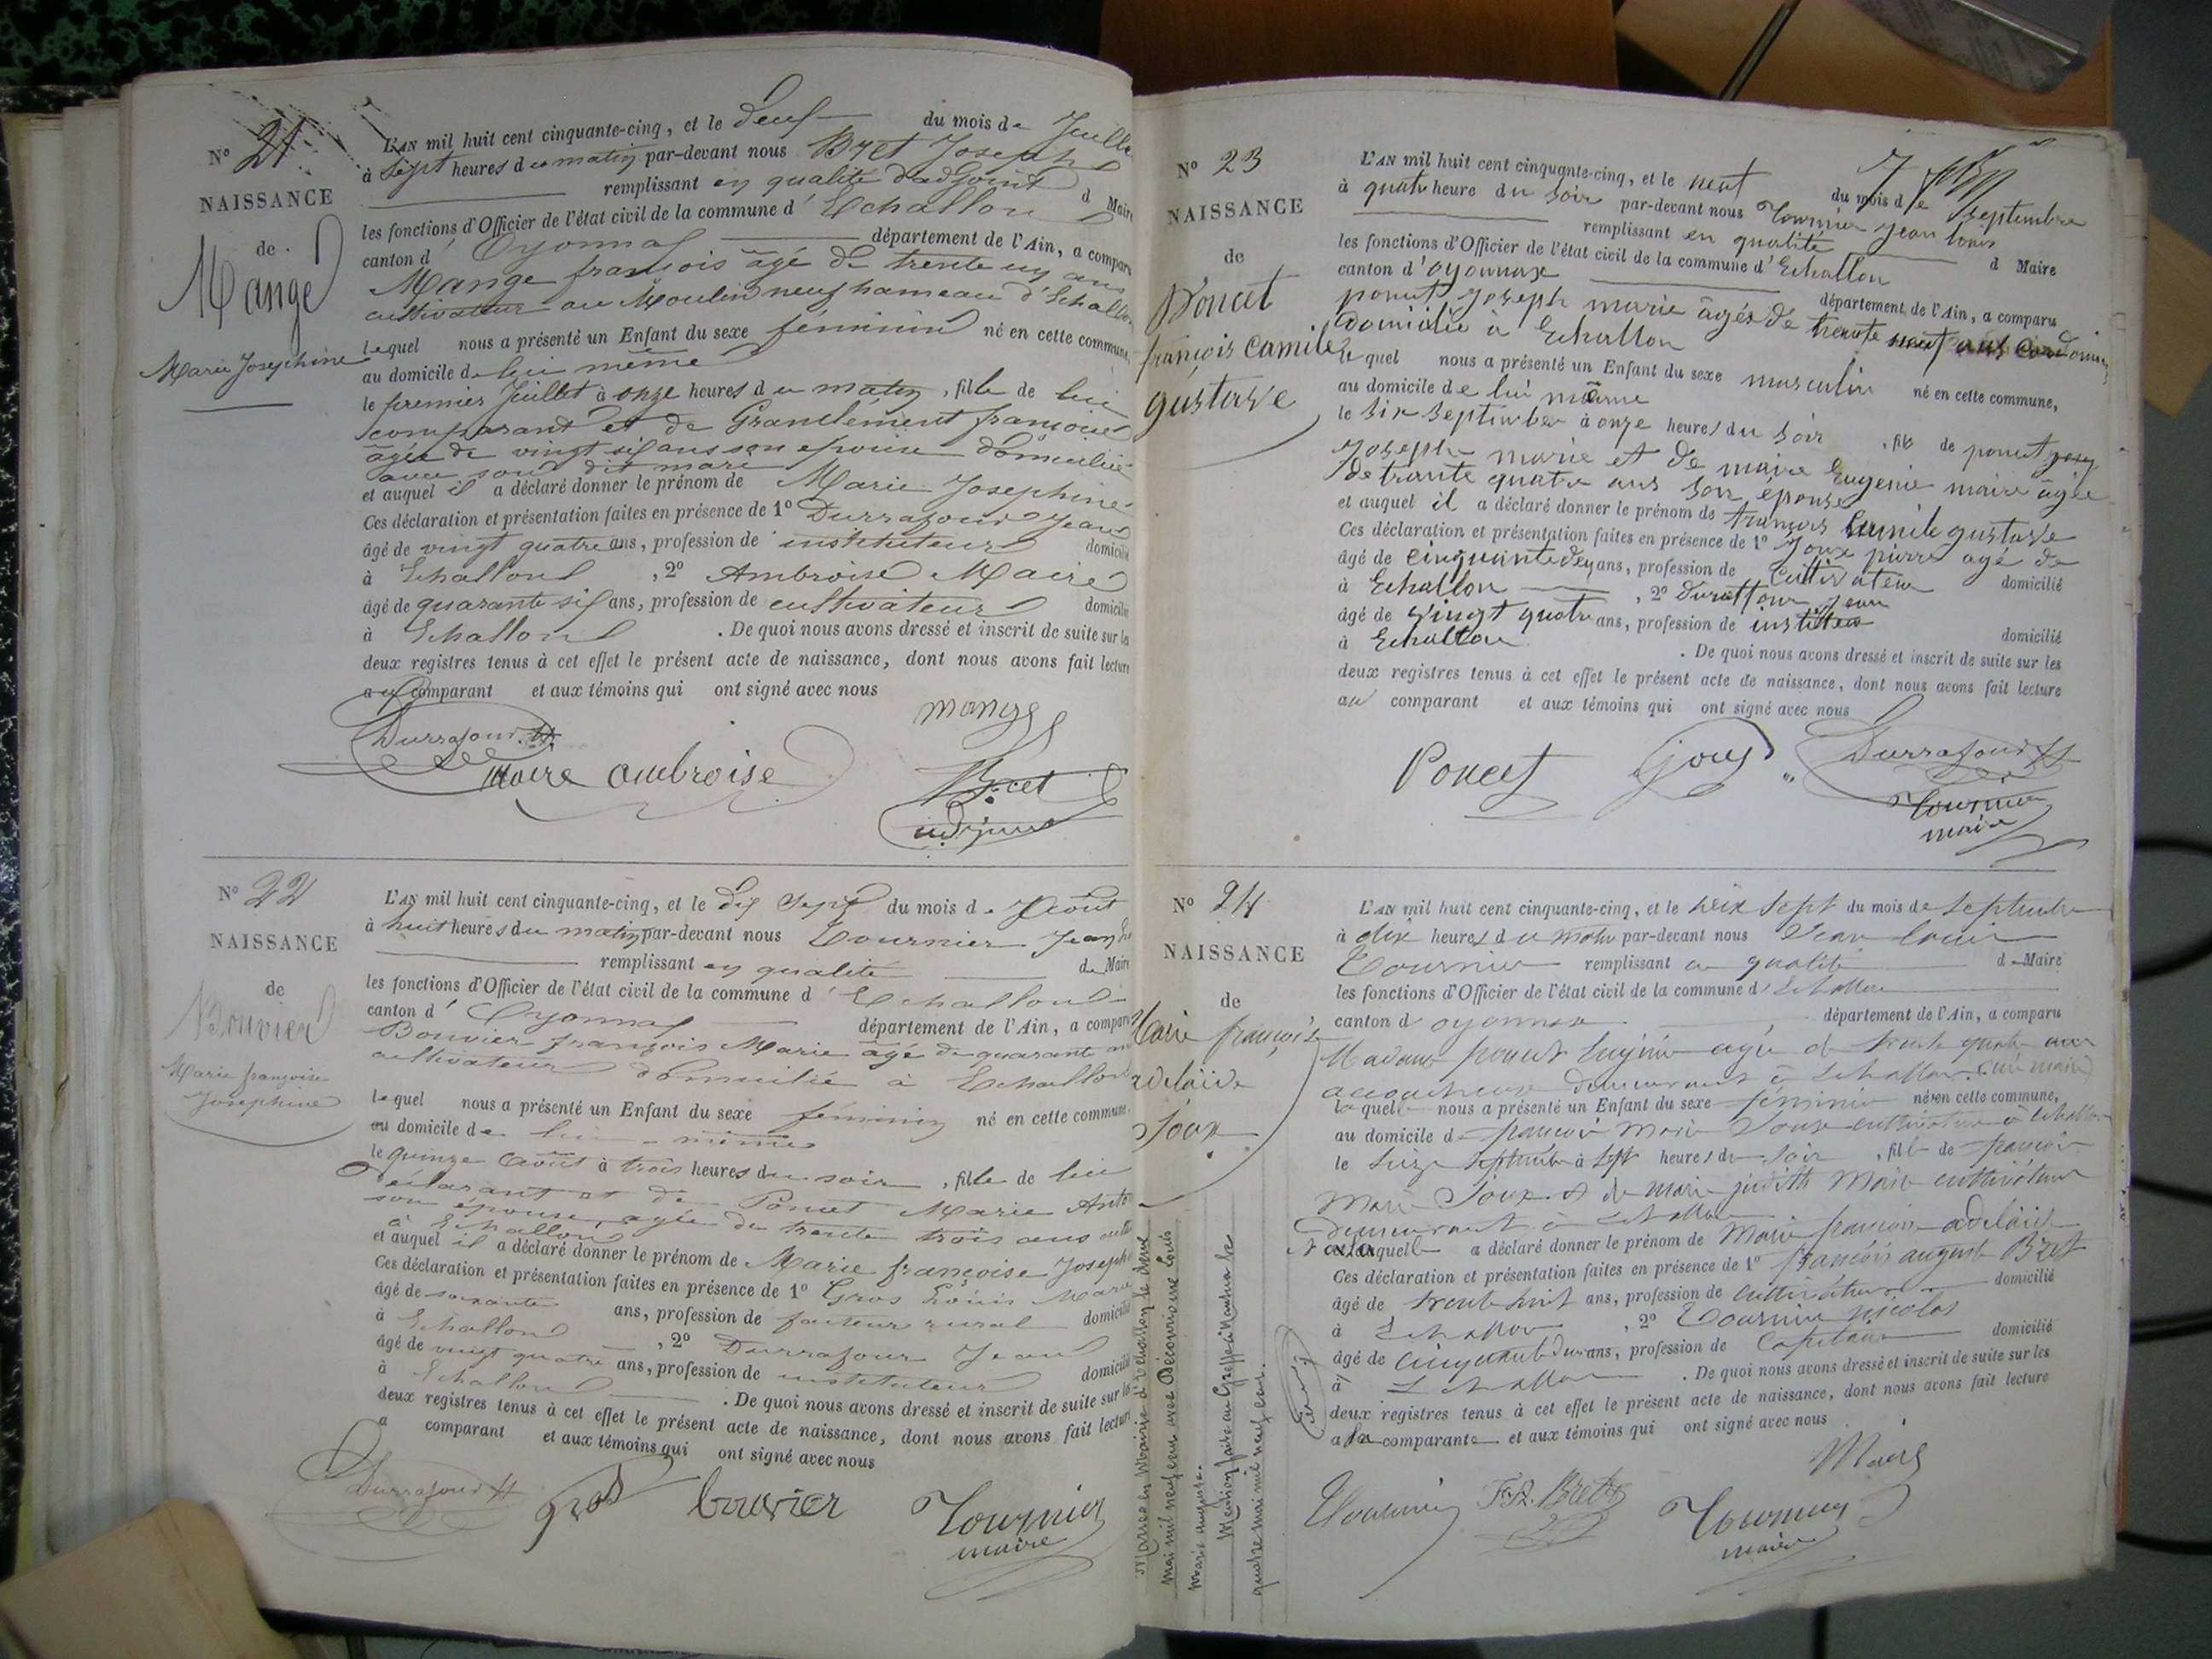 N° 21
NAISSANCE
de
Mange
Marie Josephine
L'AN mil huit cent cinquante-cinq, et le deux du mois de Juille
à sept heures du matin par-devant nous Bret Joseph
remplissant en qualité d'adjoint d Maire
les fonctions d'Officier de l'état civil de la commune d'Echallon
canton d'Oyonnax département de l'Ain, a comparu
Mange françois âgé de trente un ans
cultivateur au Moulin neuf hameau d'Echallon
lequel nous a présenté un Enfant du sexe féminin né en cette commune,
au domicile de lui même
le premier Juillet à onze heures du matin, fille de lui
comparant et de Granclément françoise
âgée de vingt six ans son epouse domiciliée
avec son dit mari
et auquel il a déclaré donner le prénom de Marie Josephine
Ces déclaration et présentation faites en présence de 1° Durrafour Jean
âgé de vingt quatre ans, profession de instituteur domicilié
à Echallon, 2° Ambroise Maire
âgé de quarante six ans, profession de cultivateur domicilié
à Echallon. De quoi nous avons dressé et inscrit de suite sur les
deux registres tenus à cet effet le présent acte de naissance, dont nous avons fait lecture
au comparant et aux témoins qui ont signé avec nous
Mange
Durrafour
Maire ambroise
Bret
adjoint
N° 22
NAISSANCE
de
Bouvier
Marie françoise
Josephine
L'AN mil huit cent cinquante-cinq, et le dix sept du mois d'Août
à huit heures du matin par-devant nous Tournier Jean
remplissant en qualité de Maire
les fonctions d'Officier de l'état civil de la commune d'Echallon
canton d'Oyonnax département de l'Ain, a comparu
Bouvier françois Marie âgé de quarante an
cultivateur domicilié à Echallon
lequel nous a présenté un Enfant du sexe féminin né en cette commune,
au domicile de lui-même
le quinze août à trois heures du soir, fille de lui
déclarant et de Poncet Marie Anto
son épouse, agée de trente trois ans
à Echallon
et auquel il a déclaré donner le prénom de Marie françoise Joseph
Ces déclaration et présentation faites en présence de 1° Gros Louis Marie
âgé de soixante ans, profession de facteur rural domicilié
à Echallon, 2° Durrafour Jean
âgé de vingt quatre ans, profession de instituteur domicilié
à Echallon. De quoi nous avons dressé et inscrit de suite sur les
deux registres tenus à cet effet le présent acte de naissance, dont nous avons fait lecture
a comparant et aux témoins qui ont signé avec nous
Durrafour gros bouvier Tournier
maire
N° 23
NAISSANCE
de
Poncet
françois Camile
gustave
L'AN mil huit cent cinquante-cinq, et le neuf du mois de Septembre
à quatre heure du soir par-devant nous Tournier jean louis
remplissant en qualité d Maire
les fonctions d'Officier de l'état civil de la commune d'Echallon
canton d'oyonnax département de l'Ain, a comparu
poncet Joseph marie âgés de trente neuf ans
domicilie à Echallon
lequel nous a présenté un Enfant du sexe masculin né en cette commune,
au domicile de lui même
le six septembre à onze heures du soir, fils de poncet
Joseph marie et de maire Eugenie maire âgée
de trante quatre ans son épouse
et auquel il a déclaré donner le prénom de francois Camile gustave
Ces déclaration et présentation faites en présence de 1° Joux pierre agé de
âgé de cinquante deux ans, profession de Cultivateur domicilié
à Echallon, 2° duraffour jean
âgé de vingt quatre ans, profession de instituteur domicilié
à Echallon. De quoi nous avons dressé et inscrit de suite sur les
deux registres tenus à cet effet le présent acte de naissance, dont nous avons fait lecture
au comparant et aux témoins qui ont signé avec nous
Poncet Joux Durrafour
Tournier
maire
N° 24
NAISSANCE
de
Marie françoise
adelaide
Joux
L'AN mil huit cent cinquante-cinq, et le dix sept du mois de septembre
à dix heures du matin par-devant nous Jean louis
Tournier remplissant en qualité de Maire
les fonctions d'Officier de l'état civil de la commune d'Echallon
canton d oyonnax département de l'Ain, a comparu
Madame poncet Eugénie agée de trente quatre ans
accoucheuse demeurant à Echallon (née maire)
laquelle nous a présenté un Enfant du sexe féminin né en cette commune,
au domicile de françois Marie Joux cultivateur à Echallon
le seize septembre à sept heures du soir, fille de françois
Marie Joux et de marie judith Maire cultivateurs
demeurant à Echallon
et a laquelle a déclaré donner le prénom de Marie françoise adelaide
Ces déclaration et présentation faites en présence de 1° françois auguste Bret
âgé de trente huit ans, profession de cultivateur domicilié
à Echallon, 2° Tournier nicolas
âgé de cinquante deux ans, profession de Capitaine domicilié
à Echallon. De quoi nous avons dressé et inscrit de suite sur les
deux registres tenus à cet effet le présent acte de naissance, dont nous avons fait lecture
a la comparante et aux témoins qui ont signé avec nous
Maire
Tournier F.A. Bret Tournier
maire
Mariée en Mairie d'Echallon le
mai mil neuf cent avec Louis
Marie auguste.
Mention faite au Greffe à Nantua le
quatre mai mil neuf cent.